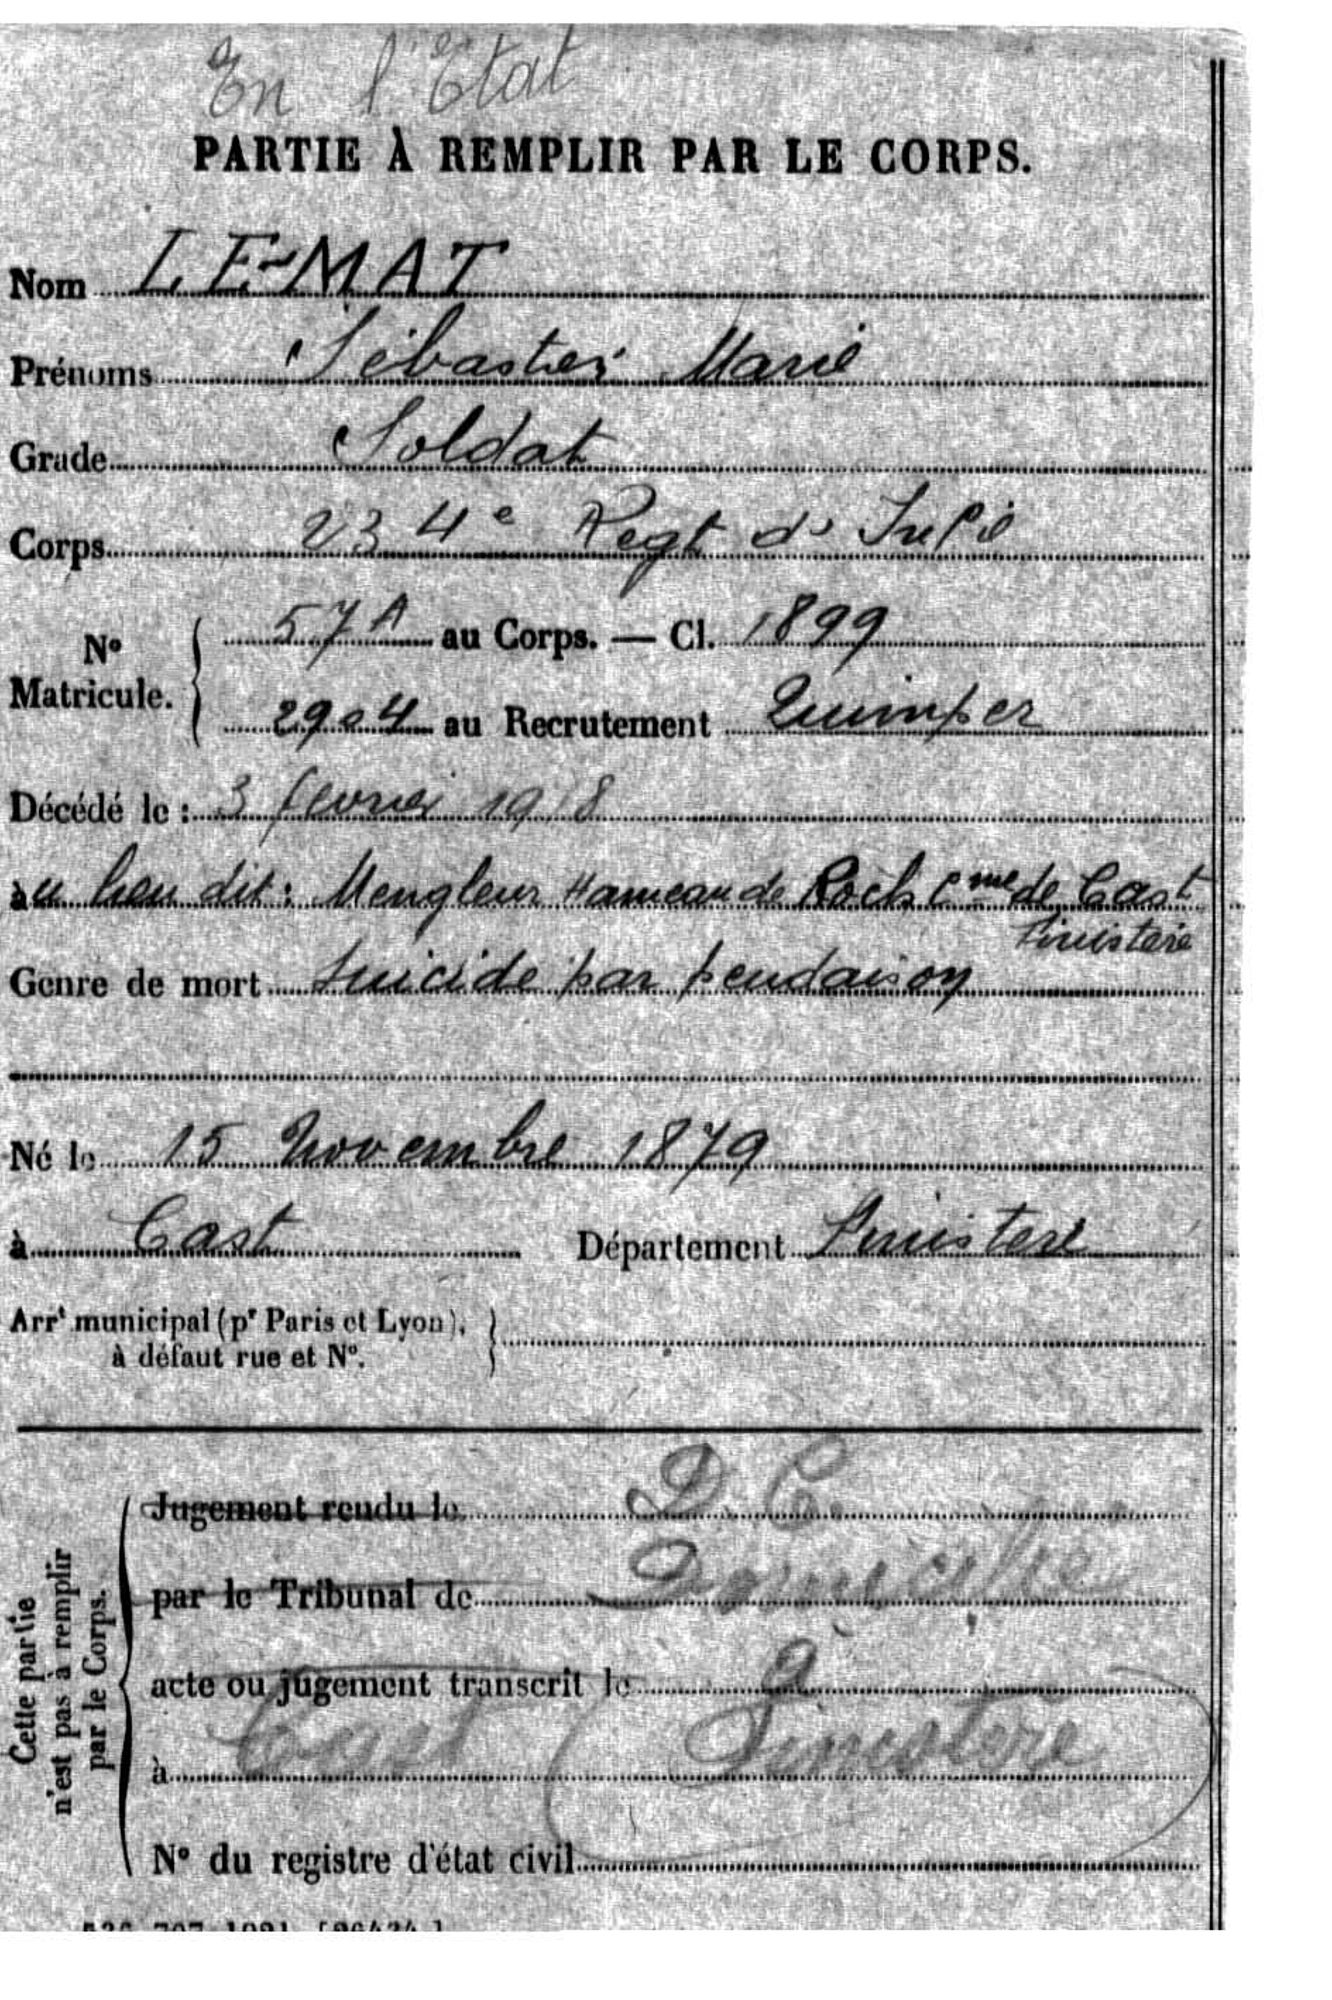 En l'Etat
PARTIE À REMPLIR PAR LE CORPS.
Nom LE-MAT
Prénoms Sébastien Marie
Grade Soldat
Corps 234e Regt d' Infie
No Matricule. 57A au Corps. — Cl. 1899
2904 au Recrutement Quimper
Décédé le : 3 février 1918
au lieu dit : Mengleur Hameau de Roch Cme de Cast
Finistère
Genre de mort Suicide par pendaison
Né le 15 Novembre 1879
à Cast Département Finistere
Arrt municipal (pr Paris et Lyon), à défaut rue et No.
Cette partie n'est pas à remplir par le Corps.
Jugement rendu le D. C.
par le Tribunal de Domicile
acte ou jugement transcrit le à
à Cast (Finistère)
No du registre d'état civil